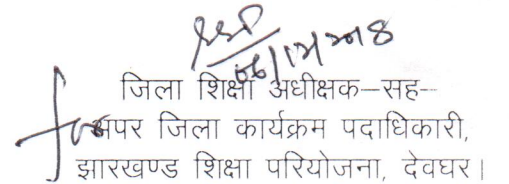 जिला शिक्षा अधीक्षक–सह–
अपर जिला कार्यक्रम पदाधिकारी,
झारखण्ड शिक्षा परियोजना, देवघर।